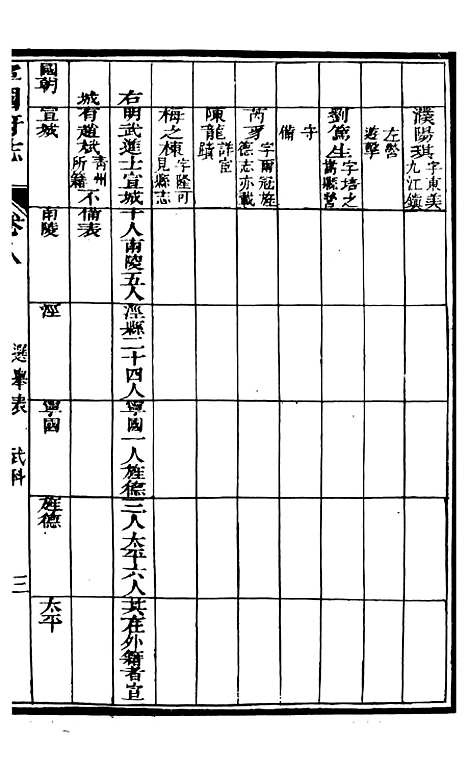 濮陽琪 字東美 九江鎮
左營
遊擊
劉篤生 字培之 蕪縣營
守
備
芮 字爾冠旌 德志亦載
陳龍 詳宦 蹟
梅之棟 字隆可 見縣志
右明武進士宣城十人南陵五人涇縣二十四人寧國一人旌德三人太平六人其在外籍者宣
城有趙斌 青州 所籍 不備表
國朝 宣城 南陵 涇 寧國 旌德 太平
寧國府志 卷八 選舉表 武科 三